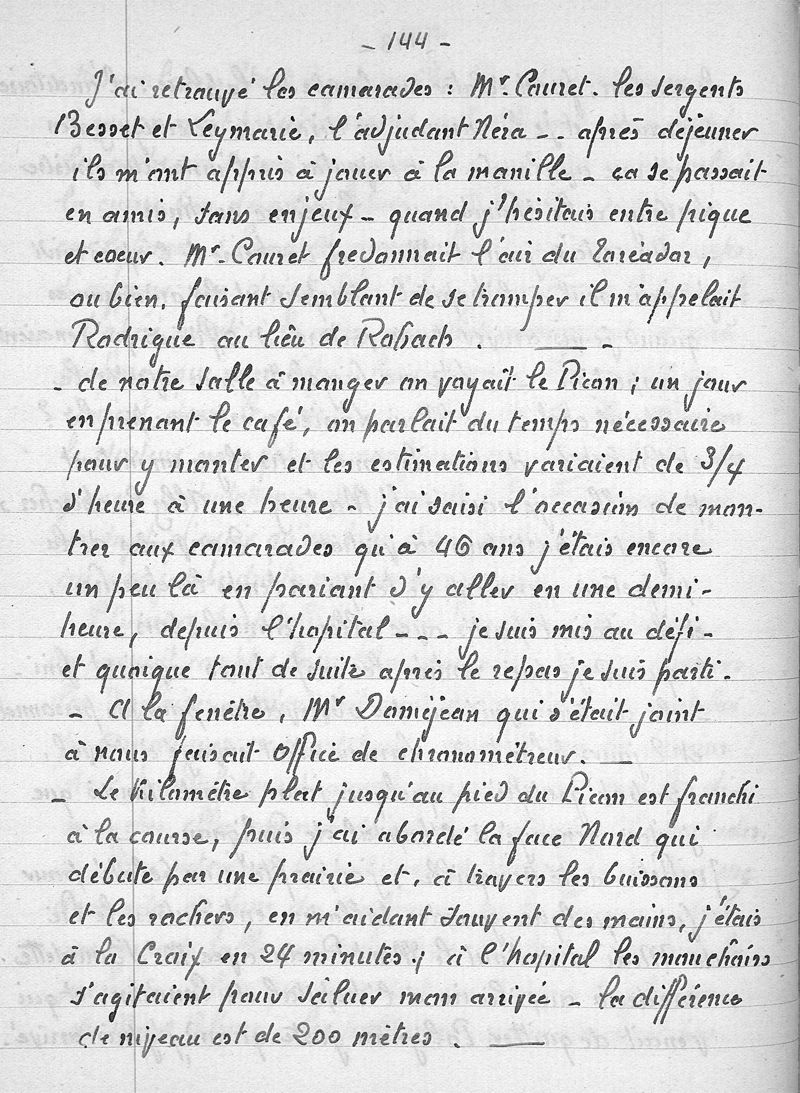 - 144 -
J'ai retrouvé les camarades : Mr. Couret. les sergents
Besset et Leymarie, l'adjudant Néra - - après déjeuner
ils m'ont appris à jouer à la manille - ça se passait
en amis, sans enjeux - quand j'hésitais entre pique
et coeur. Mr. Couret fredonnait l'air du Toréador,
ou bien, faisant semblant de se tromper il m'appelait
Rodrigue au lieu de Robach . —— -
- de notre salle à manger on voyait le Picon ; un jour
en prenant le café, on parlait du temps nécessaire
pour y monter et les estimations variaient de 3/4
d'heure à une heure - j'ai saisi l'occasion de mon-
trer aux camarades qu'à 46 ans j'étais encore
un peu là en pariant d'y aller en une demi-
heure, depuis l'hopital - - - je suis mis au défi -
et quoique tout de suite après le repas je suis parti -
- A la fenêtre, Mr Doméjean qui s'était joint
à nous faisait office de chronométreur. —
- Le Kilomètre plat jusqu'au pied du Picon est franchi
à la course, puis j'ai abordé la face Nord qui
débute par une prairie et, à travers les buissons
et les rochers, en m'aidant souvent des mains, j'étais
à la Croix en 24 minutes ; à l'hopital les mouchoirs
s'agitaient pour saluer mon arrivée - la différence
de niveau est de 200 mètres . ——